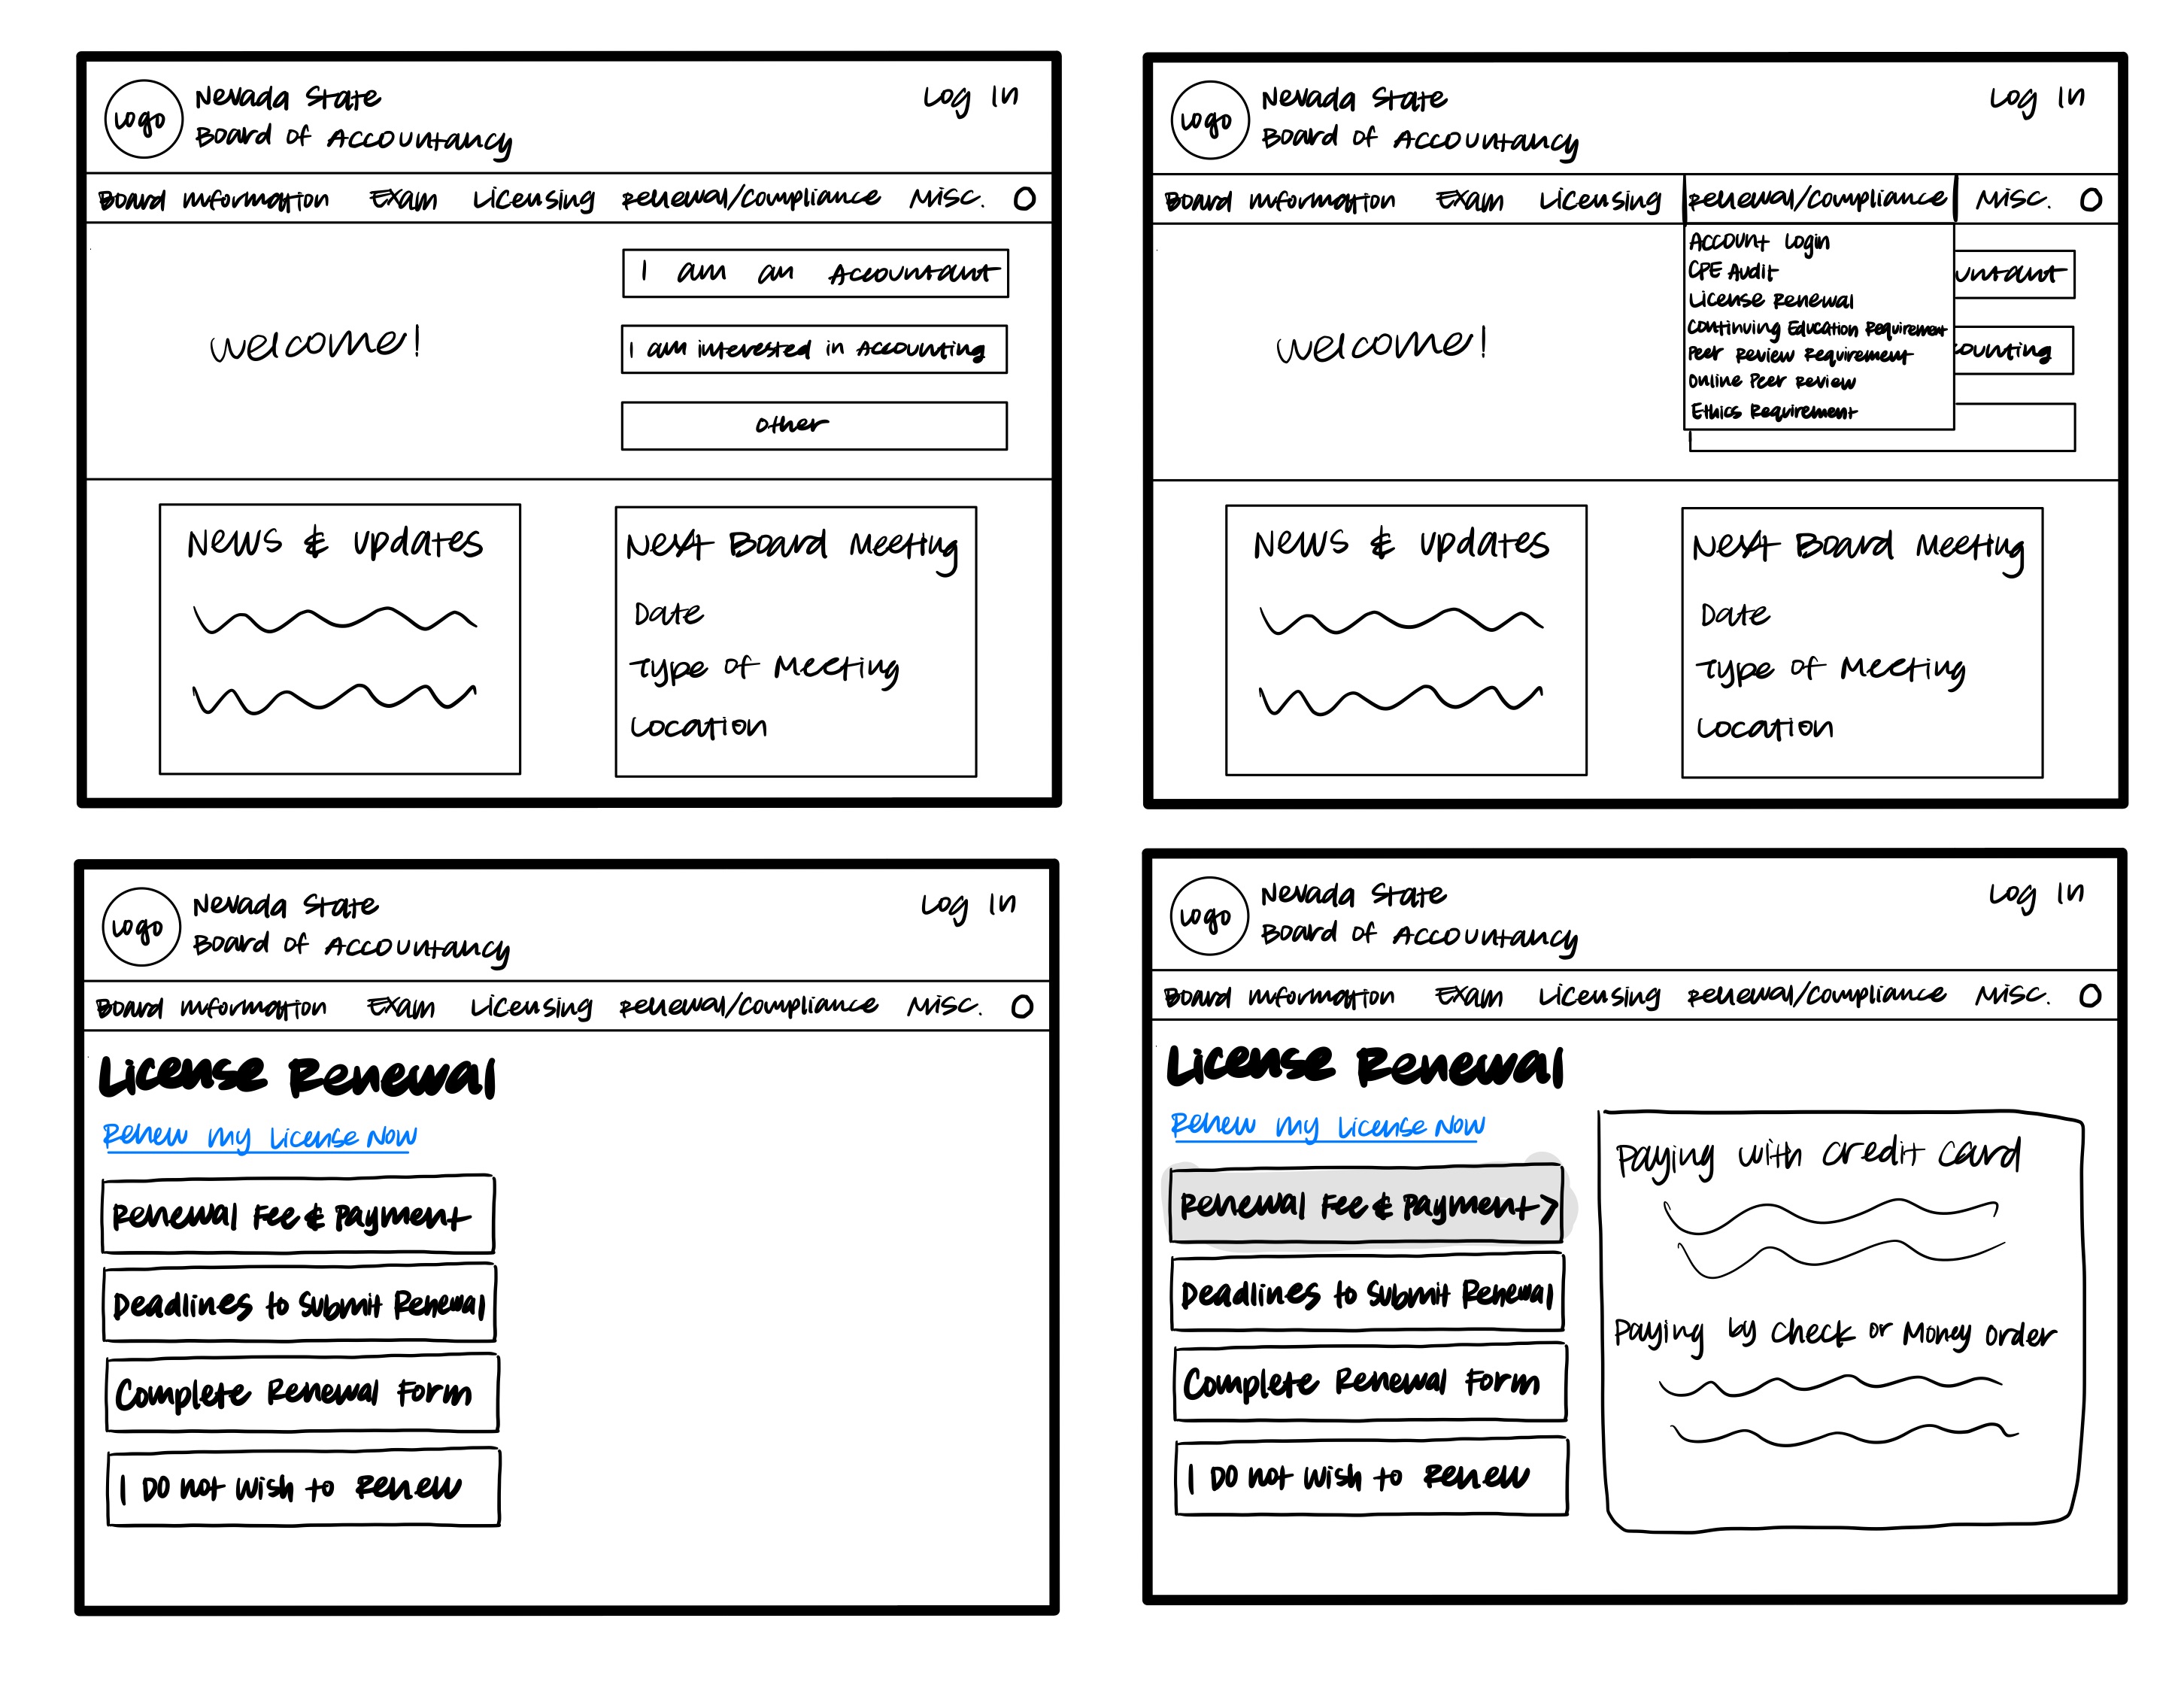 Logo
Nevada State
Board of Accountancy
Log In
Board Information Exam Licensing Renewal/Compliance Misc.
Welcome!
I am an Accountant
I am interested in Accounting
Other
News & Updates
Next Board Meeting
Date
Type of Meeting
Location
Logo
Nevada State
Board of Accountancy
Log In
Board Information Exam Licensing Renewal/Compliance Misc.
Account Login
CPE Audit
License Renewal
Continuing Education Requirement
Peer Review Requirement
Online Peer Review
Ethics Requirement
untant
counting
Welcome!
News & Updates
Next Board Meeting
Date
Type of Meeting
Location
Logo
Nevada State
Board of Accountancy
Log In
Board Information Exam Licensing Renewal/Compliance Misc.
License Renewal
Renew my License Now
Renewal Fee & Payment
Deadlines to Submit Renewal
Complete Renewal Form
I Do not wish to Renew
Logo
Nevada State
Board of Accountancy
Log In
Board Information Exam Licensing Renewal/Compliance Misc.
License Renewal
Renew my License Now
Renewal Fee & Payment >
Deadlines to Submit Renewal
Complete Renewal Form
I Do not wish to Renew
Paying with Credit Card
Paying by Check or Money Order